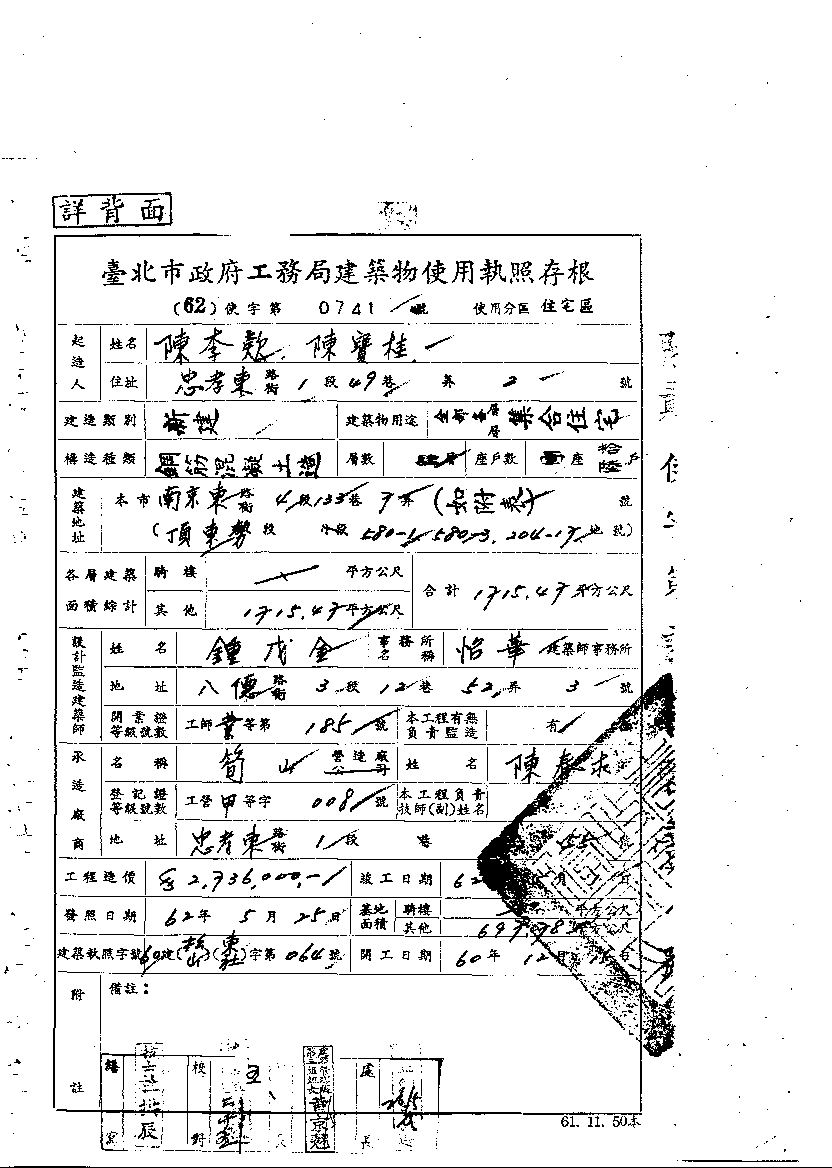 詳背面
臺北市政府工務局建築物使用執照存根
(62)使字第 0741 號 使用分區 住宅區
起造人 姓名 陳李款、陳寶桂
住址 忠孝東路街 1段49巷 弄 2 號
建造類別 新建 建築物用途 全部各層 集合住宅
構造種類 鋼筋混凝土造 層數 層 座戶數 座 拾陸戶
建築地址 本市南京東路街 4段133巷 7弄(如附表) 號
(頂東勢段 小段 580-1, 580-3, 204-17 地號)
各層建築面積綜計 騎樓 平方公尺 合計 1715.47 平方公尺
其他 1715.47 平方公尺
設計監造建築師 姓名 鍾茂金 事務所名稱 怡華 建築師事務所
地址 八德路街 3段 12巷 52弄 3 號
開業證等級號數 工師業等第 185 號 本工程有無負責監造 有
承造廠商 名稱 筍山 營造廠公司 姓名 陳春
登記證等級號數 工營甲等字 008 號 本工程負責技師(副)姓名
地址 忠孝東路街 1段 巷 55 號
工程造價 2,736,000,- 竣工日期 62 月 日
發照日期 62年 5月 25日 基地面積 騎樓 平方公尺
其他 平方公尺
建築執照字號 60建(松山)字第 064 號 開工日期 60年 12月 日
附註 備註：
繕寫 校對
處
61. 11. 50本